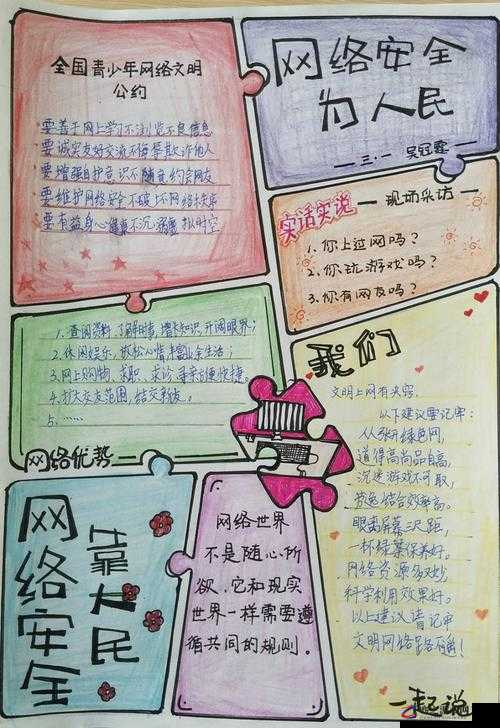 全国青少年网络文明
公约
要善于网上学习不浏览不良信息
要诚实友好交流不侮辱欺诈他人
要增强自护意识不随意约会网友
要维护网络安全不破坏网络秩序
要有益身心健康不沉溺虚拟时空
网络安全
为人民
三·一 吴冠霆
实话实说 — 现场采访 —
1.你上过网吗?
2.你玩游戏吗?
3.你有网友吗?
1.查阅资料,了解时事,增长知识,开阔眼界;
2.休闲娱乐,放松心情,丰富业余生活;
3.网上购物、求职、求诊、寻亲方便快捷。
4.扩大交友范围,结交新友。
5.……
网络优势
我们
文明上网有夹窍,
以下建议要记牢:
道得高尚品自高,
沉迷游戏不可取,
劳逸结合效率高。
眼要屏幕三尺距,
一杯绿茶保养好。
网络资源多姣妙
科学利用效果好。
以上建议请记牢
文明网络
一起说
网络安全
靠人民
网络世界
不是随心所
欲,它和现实
世界一样需要遵
循共同的规则。